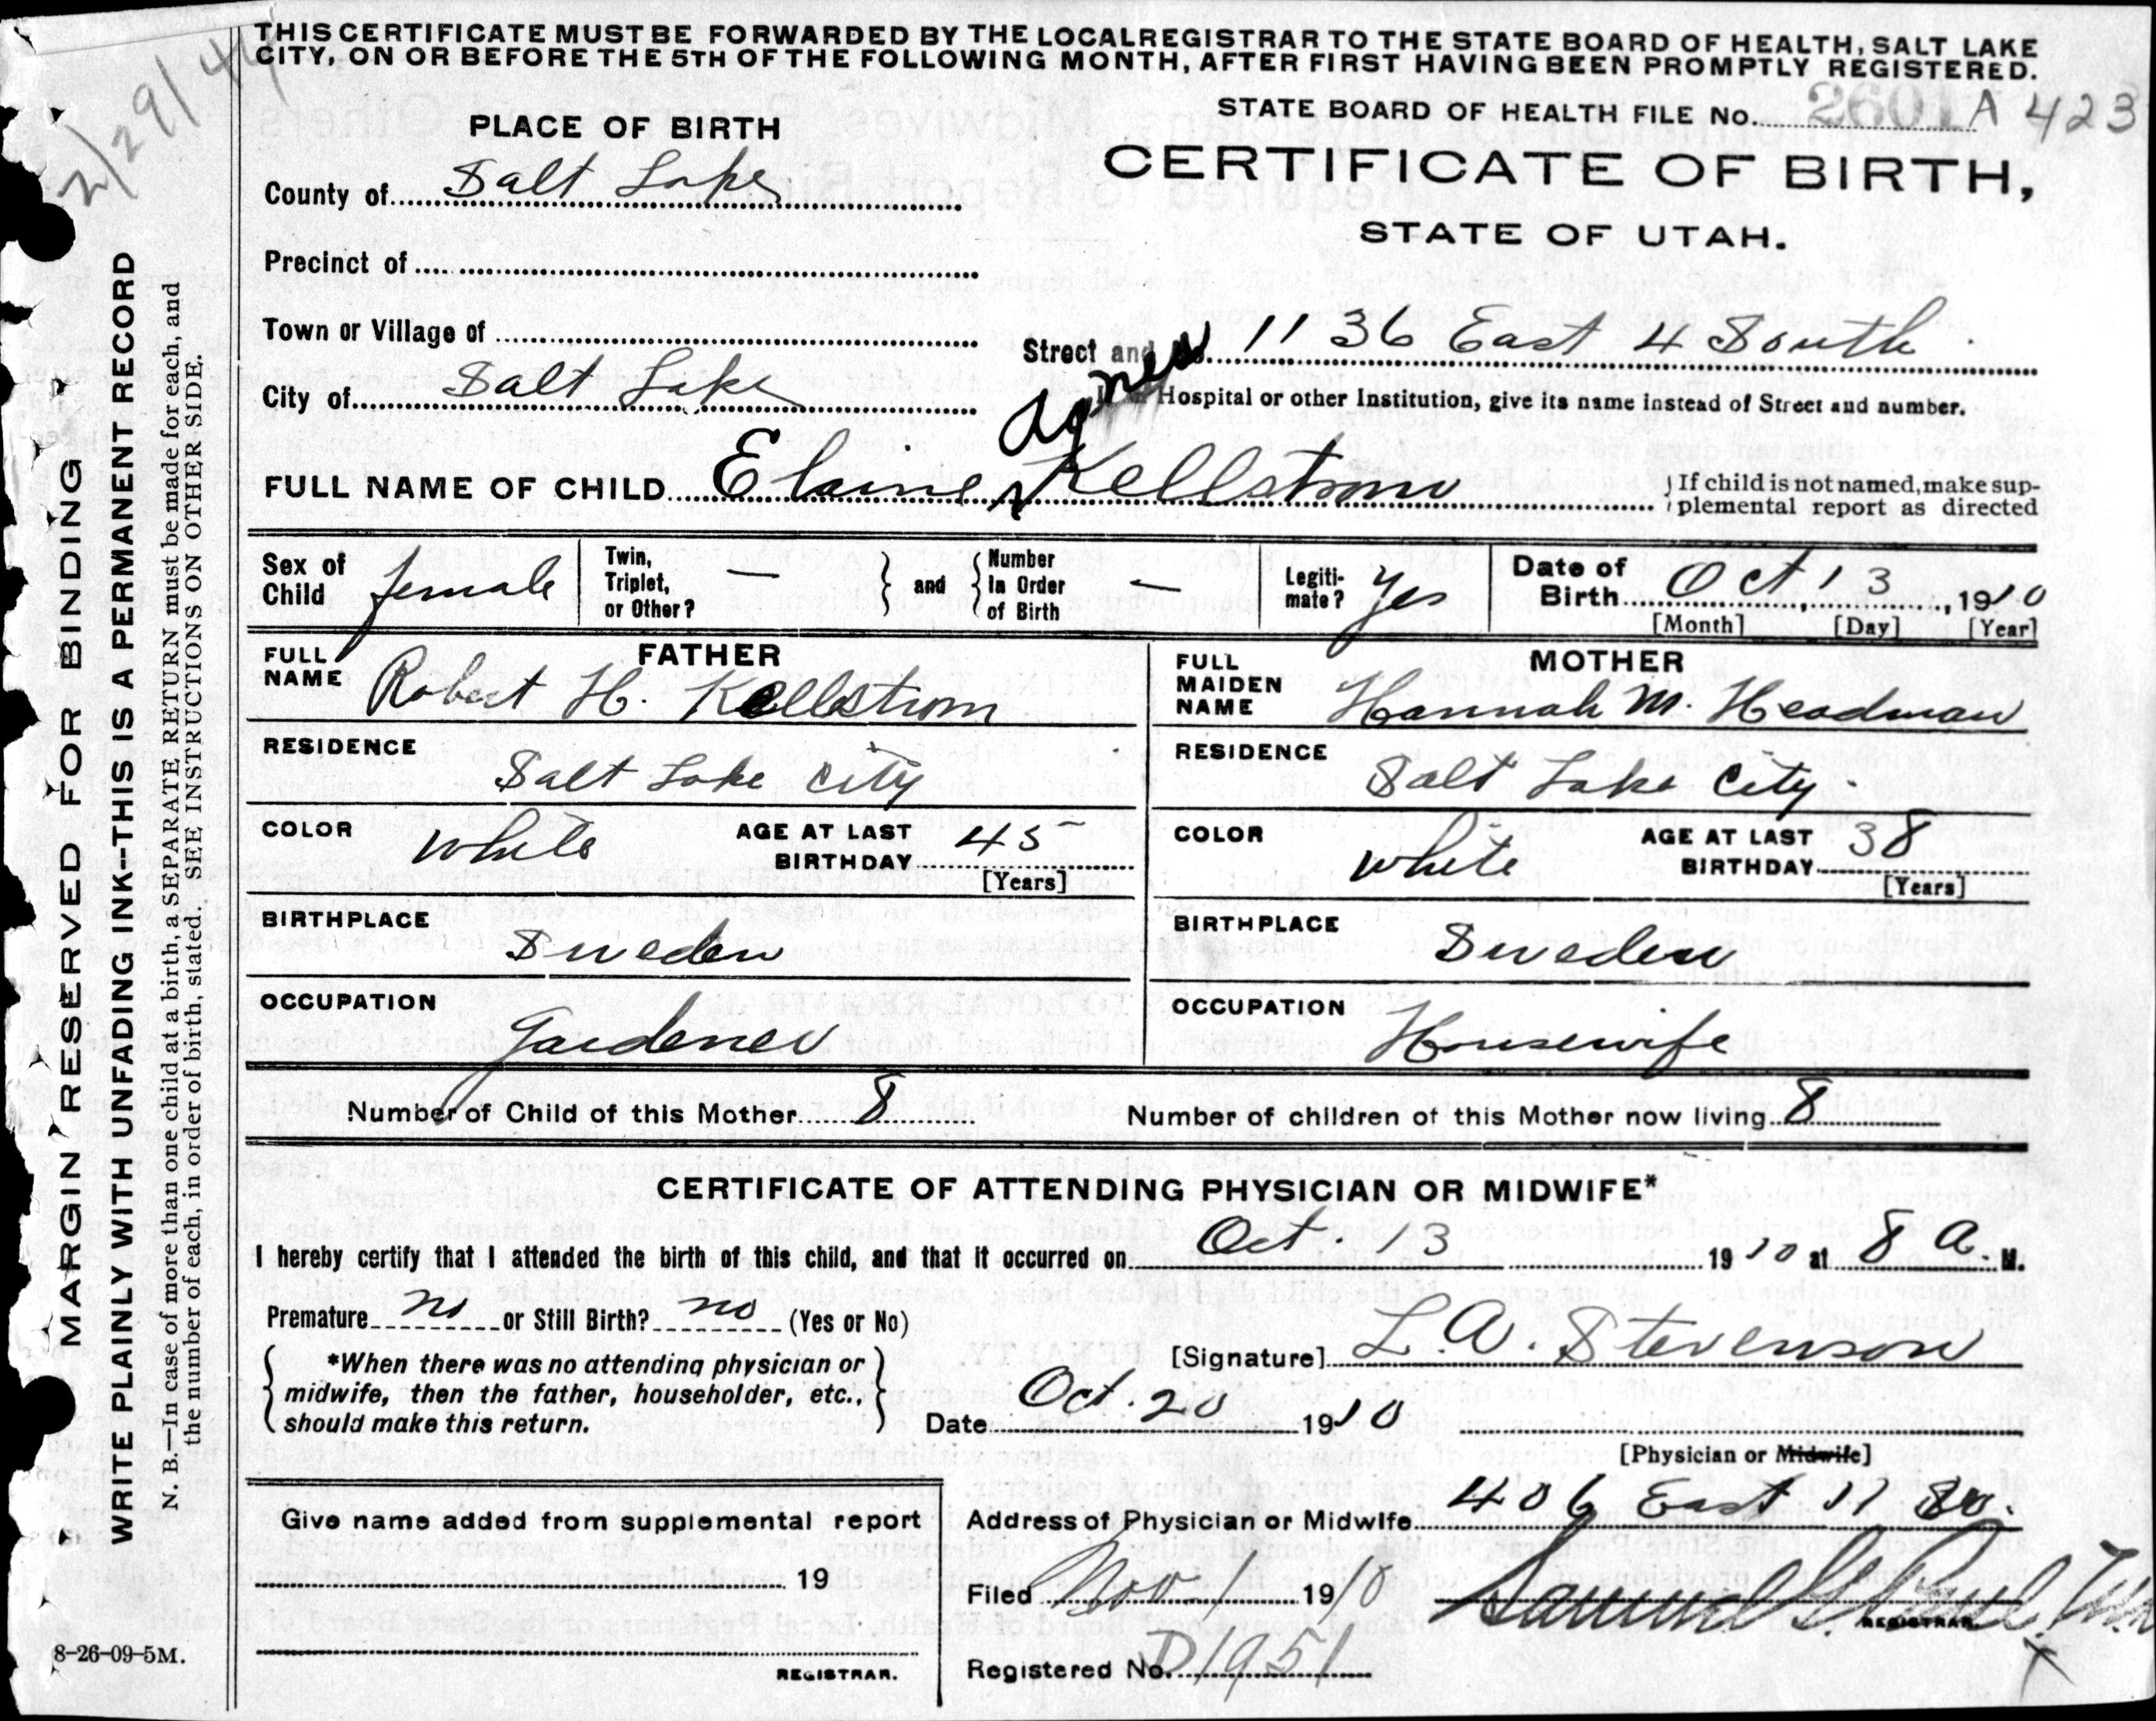 THIS CERTIFICATE MUST BE FORWARDED BY THE LOCAL REGISTRAR TO THE STATE BOARD OF HEALTH, SALT LAKE
CITY, ON OR BEFORE THE 5TH OF THE FOLLOWING MONTH, AFTER FIRST HAVING BEEN PROMPTLY REGISTERED.
2/29/44
STATE BOARD OF HEALTH FILE No. 2601 A 423
PLACE OF BIRTH
CERTIFICATE OF BIRTH,
STATE OF UTAH.
County of Salt Lake
Precinct of
Town or Village of
Street and No. 1136 East 4 South
City of Salt Lake
If in Hospital or other Institution, give its name instead of Street and number.
Agnes
FULL NAME OF CHILD Elaine Kellstrom
If child is not named, make sup-
plemental report as directed
Sex of Child female Twin, Triplet, or Other? — and Number in Order of Birth — Legiti-mate? Yes Date of Birth Oct, 13, 1910
[Month] [Day] [Year]
FATHER
FULL NAME Robert H. Kellstrom
RESIDENCE Salt Lake City
COLOR white AGE AT LAST BIRTHDAY 45
[Years]
BIRTHPLACE Sweden
OCCUPATION Gardener
MOTHER
FULL MAIDEN NAME Hannah M. Headman
RESIDENCE Salt Lake City.
COLOR white AGE AT LAST BIRTHDAY 38
[Years]
BIRTHPLACE Sweden
OCCUPATION Housewife
Number of Child of this Mother 8 Number of children of this Mother now living 8
CERTIFICATE OF ATTENDING PHYSICIAN OR MIDWIFE*
I hereby certify that I attended the birth of this child, and that it occurred on Oct. 13 1910 at 8 A. M.
Premature no or Still Birth? no (Yes or No)
*When there was no attending physician or
midwife, then the father, householder, etc.,
should make this return.
[Signature] L. A. Stevenson
Date Oct. 20 1910
[Physician or Midwife]
Address of Physician or Midwife 406 East 11 So.
Give name added from supplemental report
19
REGISTRAR.
Filed Nov 1 1910 Samuel G. Paul
REGISTRAR
Registered No. D1951
8-26-09-5M.
MARGIN RESERVED FOR BINDING
WRITE PLAINLY WITH UNFADING INK--THIS IS A PERMANENT RECORD
N. B.—In case of more than one child at a birth, a SEPARATE RETURN must be made for each, and
the number of each, in order of birth, stated. SEE INSTRUCTIONS ON OTHER SIDE.